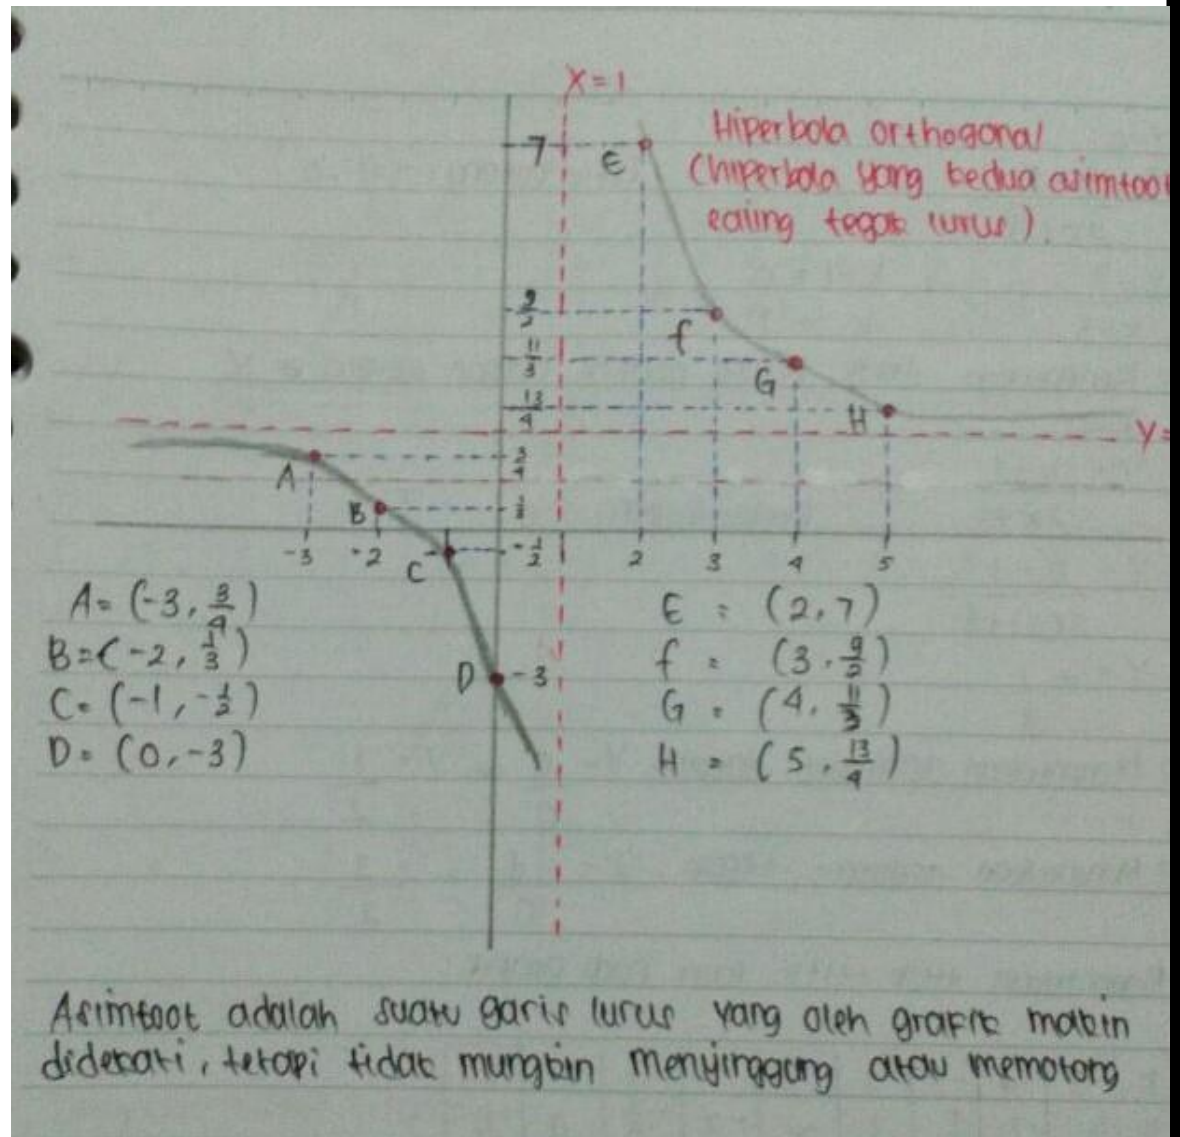 X = 1
Hiperbola orthogonal
(hiperbola yang kedua asimtoot
saling tegak lurus).
7
E
9/2
f
11/3
G
13/4
H
Y=
3/4
A
B
1/3
-3
-2
C
-1/2
2
3
4
5
D
-3
A = (-3, 3/4)
B = (-2, 1/3)
C = (-1, -1/2)
D = (0, -3)
E = (2, 7)
f = (3, 9/2)
G = (4, 11/3)
H = (5, 13/4)
Asimtoot adalah suatu garis lurus yang oleh grafik makin
didekati, tetapi tidak mungkin menyinggung atau memotong